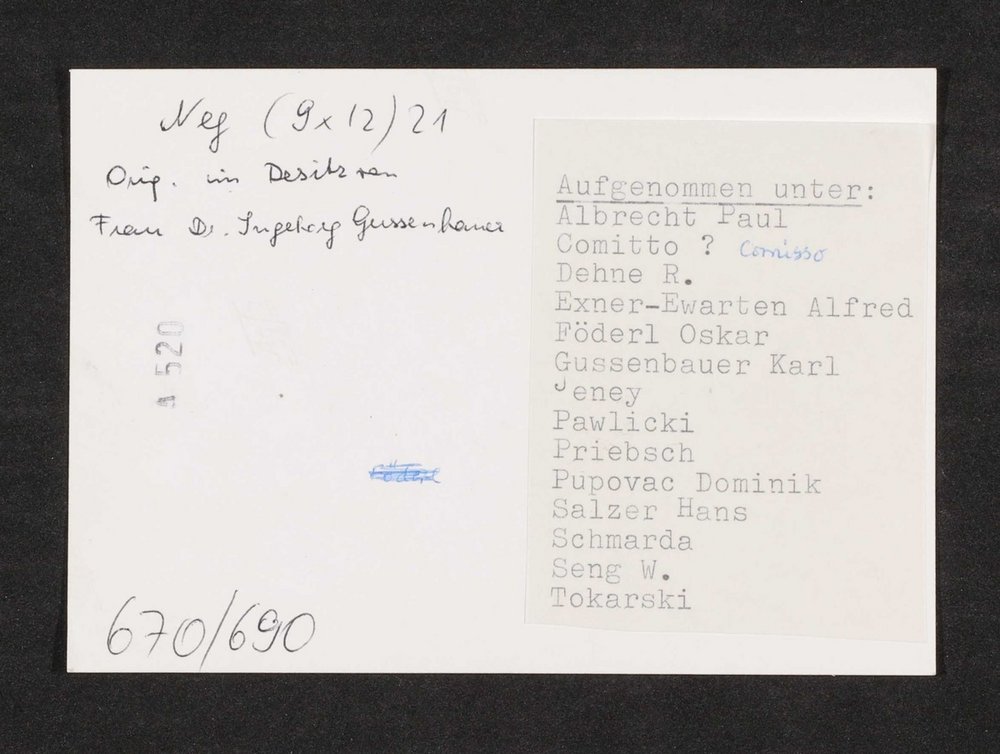 Neg (9x12) 21
Orig. im Besitz von
Frau Dr. Ingeborg Gussenbauer
a 520
Föderl
670/690
Aufgenommen unter:
Albrecht Paul
Comitto ? Comisso
Dehne R.
Exner-Ewarten Alfred
Föderl Oskar
Gussenbauer Karl
Jeney
Pawlicki
Priebsch
Pupovac Dominik
Salzer Hans
Schmarda
Seng W.
Tokarski